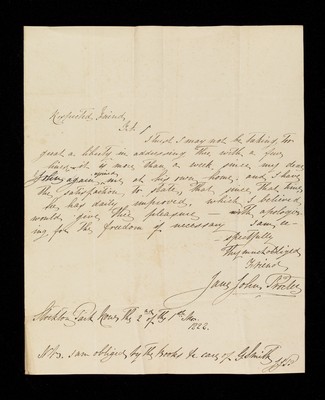 Respected Friend,
I trust I may not be taking too
great a liberty in addressing thee with a few
lines, it is more than a week since my dear
John again me at his own home, and I have
the satisfaction to state, that since that time,
he has daily improved, which I believed,
would give thee pleasure — with apologiz-
ing for the freedom of necessary I am re-
-spectfully
Thy much obliged
Friend
Jane John Procter
Stockton Park Row, the 2nd of the 1st Mo.
1822.
NB. I am obliged by the books to care of G Smith